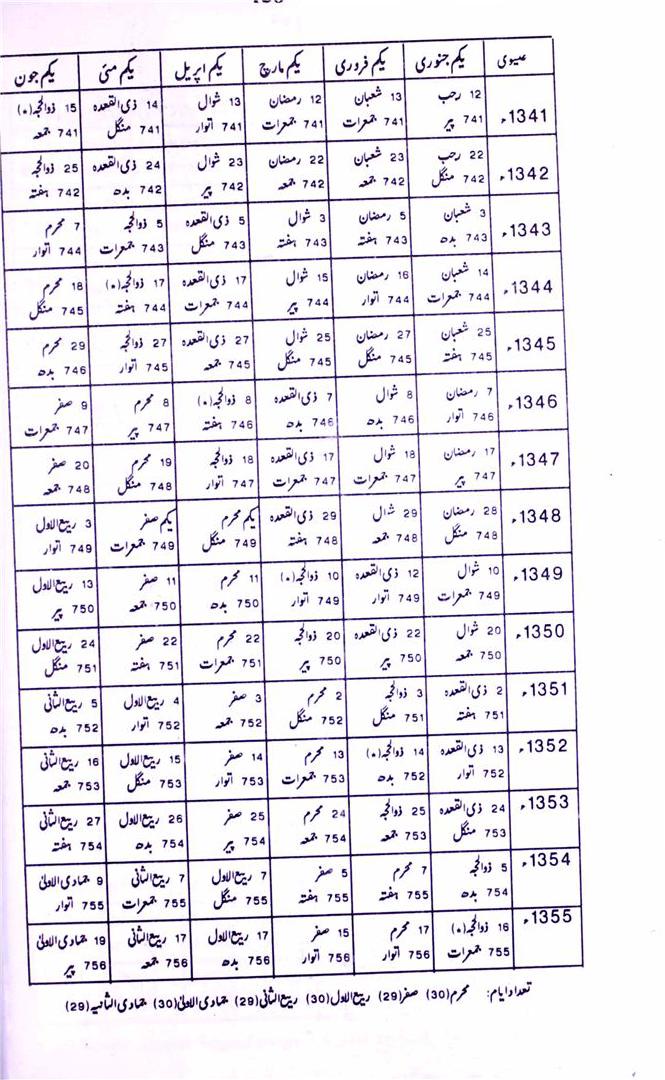 عیسوی یکم جنوری یکم فروری یکم مارچ یکم اپریل یکم مئی یکم جون
1341ء 12 رجب 13 شعبان 12 رمضان 13 شوال 14 ذی القعدہ 15 ذوالحجہ (*)
741 پیر 741 جمعرات 741 جمعرات 741 اتوار 741 منگل 741 جمعہ
1342ء 22 رجب 23 شعبان 22 رمضان 23 شوال 24 ذی القعدہ 25 ذوالحجہ
742 منگل 742 جمعہ 742 جمعہ 742 پیر 742 بدھ 742 ہفتہ
1343ء 3 شعبان 5 رمضان 3 شوال 5 ذی القعدہ 5 ذوالحجہ 7 محرم
743 بدھ 743 ہفتہ 743 ہفتہ 743 منگل 743 جمعرات 744 اتوار
1344ء 14 شعبان 16 رمضان 15 شوال 17 ذی القعدہ 17 ذوالحجہ (*) 18 محرم
744 جمعرات 744 اتوار 744 پیر 744 جمعرات 744 ہفتہ 745 منگل
1345ء 25 شعبان 27 رمضان 25 شوال 27 ذی القعدہ 27 ذوالحجہ 29 محرم
745 ہفتہ 745 منگل 745 منگل 745 جمعہ 745 اتوار 746 بدھ
1346ء 7 رمضان 8 شوال 7 ذی القعدہ 8 ذوالحجہ (*) 8 محرم 9 صفر
746 اتوار 746 بدھ 746 بدھ 746 ہفتہ 747 پیر 747 جمعرات
1347ء 17 رمضان 18 شوال 17 ذی القعدہ 18 ذوالحجہ 19 محرم 20 صفر
747 پیر 747 جمعرات 747 جمعرات 747 اتوار 748 منگل 748 جمعہ
1348ء 28 رمضان 29 شوال 29 ذی القعدہ یکم محرم یکم صفر 3 ربیع الاول
748 منگل 748 جمعہ 748 ہفتہ 749 منگل 749 جمعرات 749 اتوار
1349ء 10 شوال 12 ذی القعدہ 10 ذوالحجہ (*) 11 محرم 11 صفر 13 ربیع الاول
749 جمعرات 749 اتوار 749 اتوار 750 بدھ 750 جمعہ 750 پیر
1350ء 20 شوال 22 ذی القعدہ 20 ذوالحجہ 22 محرم 22 صفر 24 ربیع الاول
750 جمعہ 750 پیر 750 پیر 751 جمعرات 751 ہفتہ 751 منگل
1351ء 2 ذی القعدہ 3 ذوالحجہ 2 محرم 3 صفر 4 ربیع الاول 5 ربیع الثانی
751 ہفتہ 751 منگل 752 منگل 752 جمعہ 752 اتوار 752 بدھ
1352ء 13 ذی القعدہ 14 ذوالحجہ (*) 13 محرم 14 صفر 15 ربیع الاول 16 ربیع الثانی
752 اتوار 752 بدھ 753 جمعرات 753 اتوار 753 منگل 753 جمعہ
1353ء 24 ذی القعدہ 25 ذوالحجہ 24 محرم 25 صفر 26 ربیع الاول 27 ربیع الثانی
753 منگل 753 جمعہ 754 جمعہ 754 پیر 754 بدھ 754 ہفتہ
1354ء 5 ذوالحجہ 7 محرم 5 صفر 7 ربیع الاول 7 ربیع الثانی 9 جمادی الاولیٰ
754 بدھ 755 ہفتہ 755 ہفتہ 755 منگل 755 جمعرات 755 اتوار
1355ء 16 ذوالحجہ (*) 17 محرم 15 صفر 17 ربیع الاول 17 ربیع الثانی 19 جمادی الاولیٰ
755 جمعرات 756 اتوار 756 اتوار 756 بدھ 756 جمعہ 756 پیر
تعداد ایام: محرم (30) صفر (29) ربیع الاول (30) ربیع الثانی (29) جمادی الاولیٰ (30) جمادی الثانیہ (29)